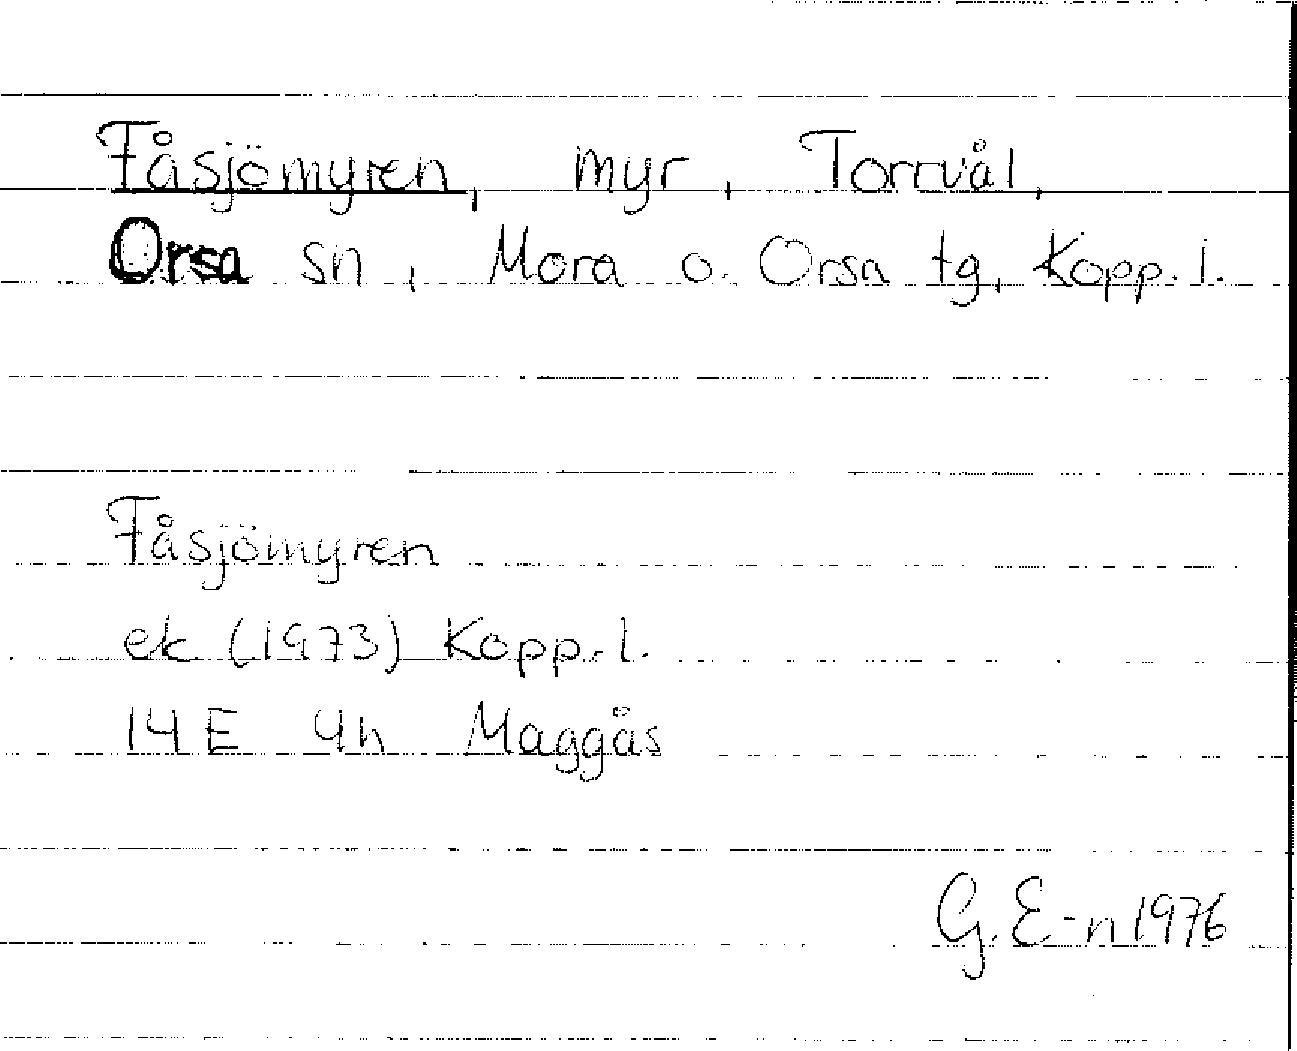 Fåsjömyren, myr, Torrvål,
Orsa sn, Mora o. Orsa tg, Kopp. l.
Fåsjömyren
ek (1973) Kopp. l.
14 E 4h Maggås
G. E-n 1976